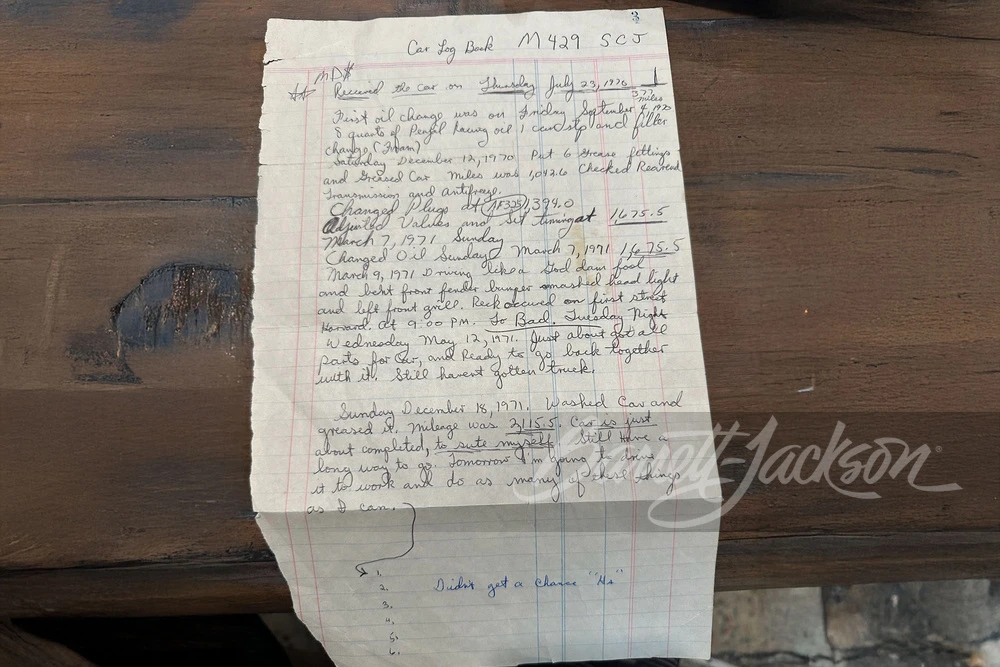 Car Log Book M429 SCJ
MD$
Received the car on Thursday July 23, 1970
377 miles
First oil change was on Friday September 4, 1970
8 quarts of Penzil Racing oil 1 can stp and filter
change (Fram)
Saturday December 12, 1970 Put 6 Grease fittings
and Greased Car Miles was 1,042.6 Checked Rearend
Transmission and Antifreeze.
Changed Plugs at (AF32S) 1,394.0
Adjusted Valves and set timing at 1,675.5
March 7, 1971 Sunday
Changed Oil Sunday March 7, 1971 1,675.5
March 9, 1971 Driving like a God dam fool
and bent front fender bumper smashed head light
and left front grill. Reck occured on first street
Howard. at 9:00 PM. To Bad. Tuesday Night
Wednesday May 12, 1971. Just about got all
parts for Car, and Ready to go back together
with it. Still havent gotten truck.
Sunday December 18, 1971. Washed Car and
greased it. Mileage was 2,115.5. Car is just
about completed, to sute myself. Still have a
long way to go. Tomorrow I'm going to drive
it to work and do as many of these things
as I can.
1.
2. Didn't get a chance "Ha"
3.
4.
5.
6.
Barrett-Jackson